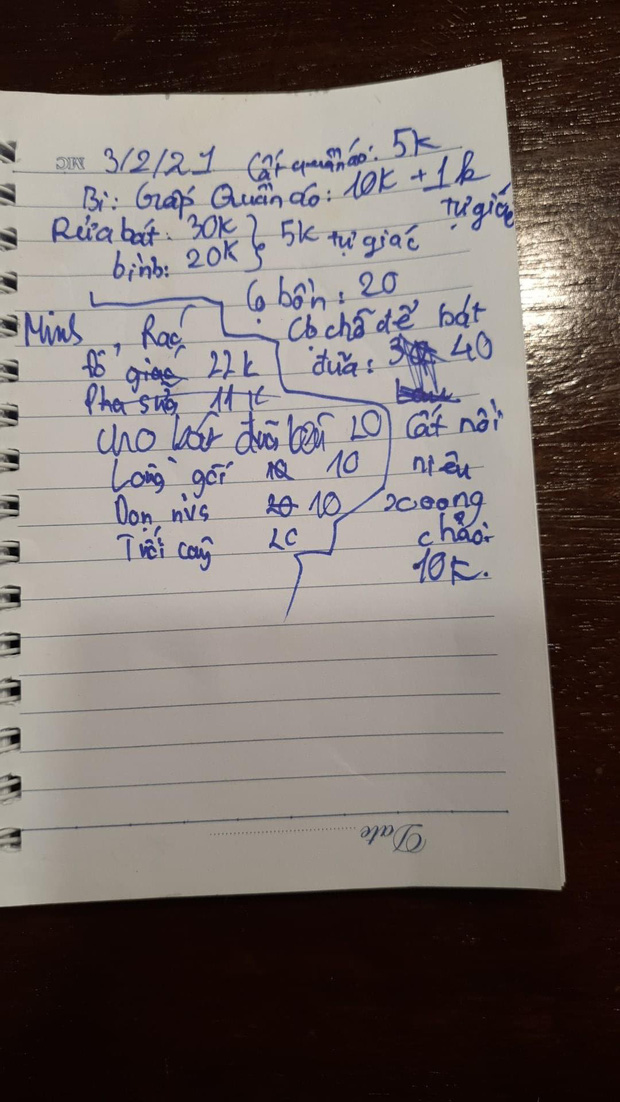 MC 3/2/21 Cất quần áo: 5k
Bi: Gấp Quần áo: 10k + 1k
tự giác
Rửa bát: 30k } 5k tự giác
bình: 20k
Cọ bồn: 20
Minh
Rác Cọ chỗ để bát
đổ giác 22k đũa: 40
Pha sữa 11k
cho bát đũa 20 Cất nồi
Lồng gối 10 10 niêu
Dọn nvs 20 10 xoong
Tưới cây 20 chảo:
10k.
Date